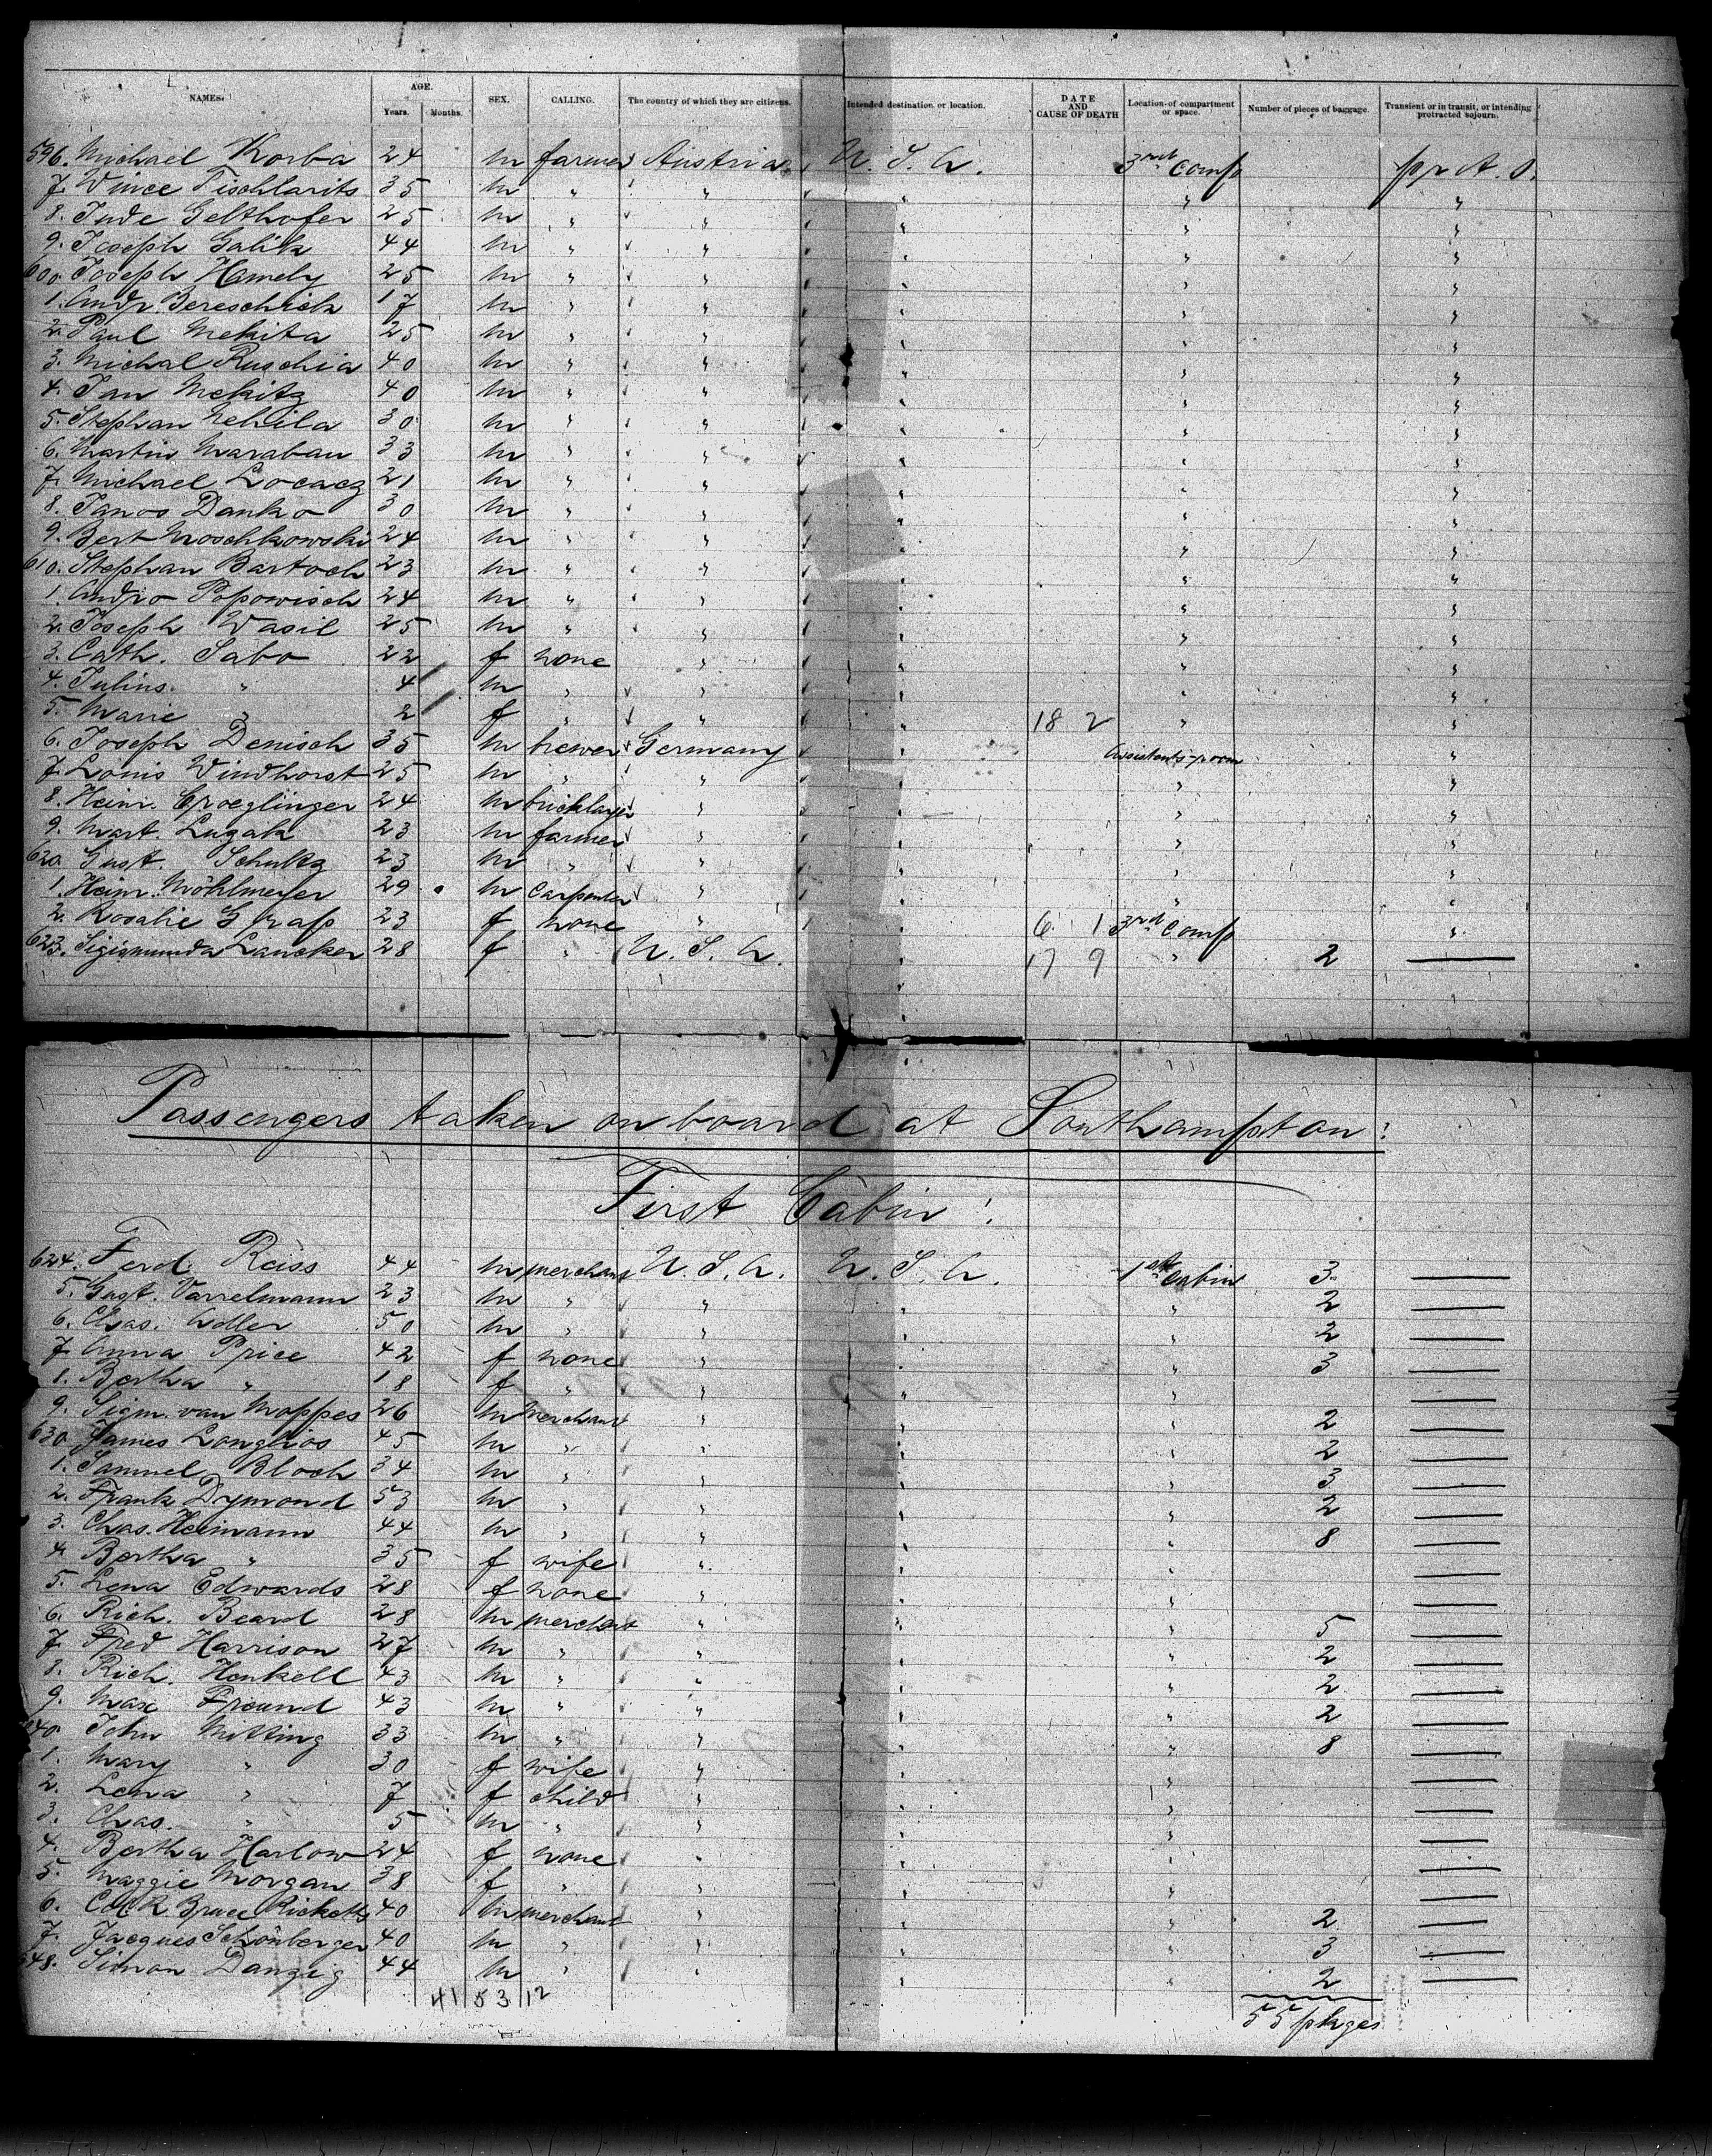 NAMES. AGE. Years. Months. SEX. CALLING. The country of which they are citizens. Intended destination or location. DATE AND CAUSE OF DEATH Location of compartment or space. Number of pieces of baggage. Transient or in transit, or intending protracted sojourn.
596. Michael Korba 24 m farmer Austria U. S. A. 3rd Comp pr A. S.
7. Wince Tischlarits 35 m " " " " "
8. Jude Gelthofer 25 m " " " " "
9. Joseph Galik 44 m " " " " "
600. Joseph Hamely 25 m " " " " "
1. Andr. Bereschick 17 m " " " " "
2. Paul Mekita 25 m " " " " "
3. Michal Ruschia 40 m " " " " "
4. Jan Mekitz 40 m " " " " "
5. Stephan 30 m " " " " "
6. Martin Maraban 33 m " " " " "
7. Michael Locacz 21 m " " " " "
8. Janos Danko 30 m " " " " "
9. Bert Moschkowski 24 m " " " " "
610. Stephan Bartoch 23 m " " " " "
1. Andro Popowisch 24 m " " " " "
2. Joseph Wasil 25 m " " " " "
3. Cath. Sabo 22 f none " " " "
4. Julius. " 4 m " " " " "
5. Marie " 2 f " " " 18 2 " "
6. Joseph Denisch 35 m brewer Germany " Assistents-room "
7. Louis Windhorst 25 m " " " " "
8. Heinr. Croeglinger 24 m bricklayer " " " "
9. Mart. Lugak 23 m farmer " " " "
620. Gust. Schultz 23 m " " " " "
1. Heinr. Möhlmeyer 29 m Carpenter " " " "
2. Rosalie Graf 23 f none " " 6 1 3rd Comp "
623. Sigismunda Lancker 28 f " U. S. A. " 17 9 " 2 —
Passengers taken on board at Southampton:
First Cabin:
624. Ferd. Reiss 44 m merchant U. S. A. U. S. A. 1st Cabin 3 —
5. Gust. Varrelmann 23 m " " " " 2 —
6. Chas. Adler 50 m " " " " 2 —
7. Anna Price 42 f none " " " 3 —
1. Bertha " 18 f " " " " —
9. Sigm. van Moppes 26 m merchant " " " 2 —
630. James Langlois 45 m " " " " 2 —
1. Samuel Bloch 34 m " " " " 3 —
2. Frank Dymond 53 m " " " " 2 —
3. Chas. Heimann 44 m " " " " 8 —
4. Bertha " 35 f wife " " " —
5. Lena Edwards 28 f none " " " —
6. Rich. Beard 28 m merchant " " " 5 —
7. Fred Harrison 27 m " " " " 2 —
8. Rich. Henkell 43 m " " " " 2 —
9. Max Freund 43 m " " " " 2 —
640. John Mitting 33 m " " " " 8 —
1. Mary " 30 f wife " " " —
2. Lena " 7 f child " " " —
3. Chas. " 5 m " " " " —
4. Bertha Harlow 24 f none " " " —
5. Maggie Morgan 38 f " " " " —
6. Col R. Bruce Ricketts 40 m merchant " " " 2 —
7. Jacques Schönberger 40 m " " " " 3 —
648. Simon Danzig 44 m " " " " 2 —
41 53 12
55 pkges